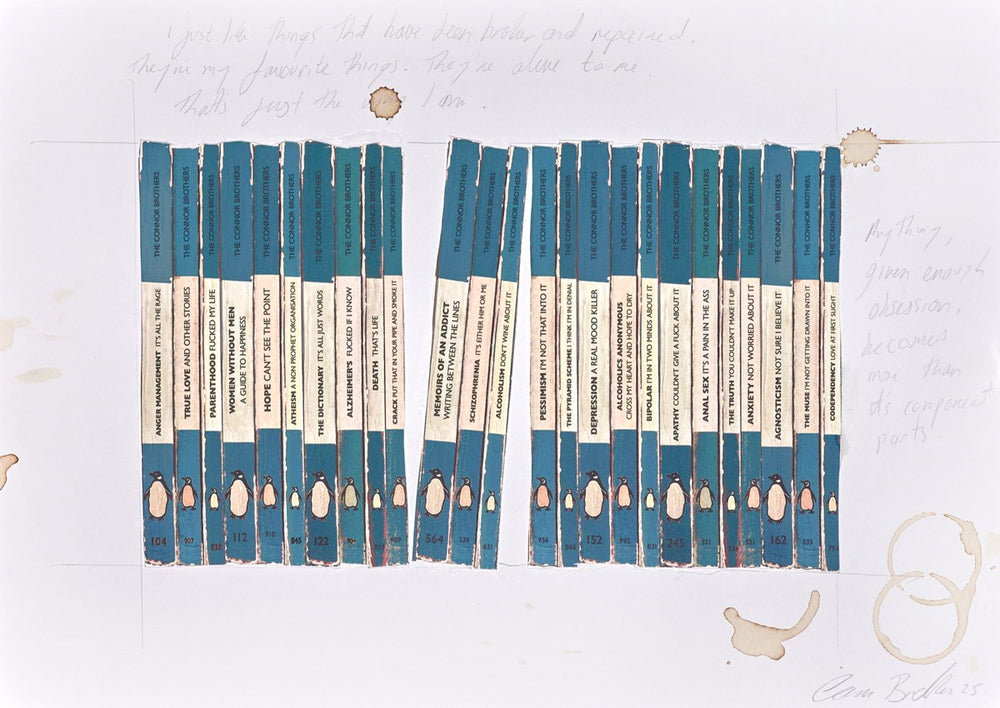 I just like things that have been broken and repaired.
They're my favourite things. They're alive to me.
That's just the I am.
THE CONNOR BROTHERS
ANGER MANAGEMENT IT'S ALL THE RAGE
104
THE CONNOR BROTHERS
TRUE LOVE AND OTHER STORIES
907
THE CONNOR BROTHERS
PARENTHOOD FUCKED MY LIFE
838
THE CONNOR BROTHERS
WOMEN WITHOUT MEN
A GUIDE TO HAPPINESS
112
THE CONNOR BROTHERS
HOPE CAN'T SEE THE POINT
910
THE CONNOR BROTHERS
ATHEISM A NON PROPHET ORGANISATION
845
THE CONNOR BROTHERS
THE DICTIONARY IT'S ALL JUST WORDS
122
THE CONNOR BROTHERS
ALZHEIMER'S FUCKED IF I KNOW
904
THE CONNOR BROTHERS
DEATH THAT'S LIFE
THE CONNOR BROTHERS
CRACK PUT THAT IN YOUR PIPE AND SMOKE IT
909
THE CONNOR BROTHERS
MEMOIRS OF AN ADDICT
WRITING BETWEEN THE LINES
564
THE CONNOR BROTHERS
SCHIZOPHRENIA IT'S EITHER HIM OR ME
THE CONNOR BROTHERS
ALCOHOLISM DON'T WINE ABOUT IT
631
THE CONNOR BROTHERS
PESSIMISM I'M NOT THAT INTO IT
956
THE CONNOR BROTHERS
THE PYRAMID SCHEME I THINK I'M IN DENIAL
868
THE CONNOR BROTHERS
DEPRESSION A REAL MOOD KILLER
152
THE CONNOR BROTHERS
ALCOHOLICS ANONYMOUS
CROSS MY HEART AND HOPE TO DRY
992
THE CONNOR BROTHERS
BIPOLAR I'M IN TWO MINDS ABOUT IT
831
THE CONNOR BROTHERS
APATHY COULDN'T GIVE A FUCK ABOUT IT
245
THE CONNOR BROTHERS
ANAL SEX IT'S A PAIN IN THE ASS
331
THE CONNOR BROTHERS
THE TRUTH YOU COULDN'T MAKE IT UP
THE CONNOR BROTHERS
ANXIETY NOT WORRIED ABOUT IT
521
THE CONNOR BROTHERS
AGNOSTICISM NOT SURE I BELIEVE IT
162
THE CONNOR BROTHERS
THE MUSE I'M NOT GETTING DRAWN INTO IT
533
THE CONNOR BROTHERS
CODEPENDENCY LOVE AT FIRST SLIGHT
754
Anything,
given enough
obsession,
becomes
more than
it's component
parts.
25